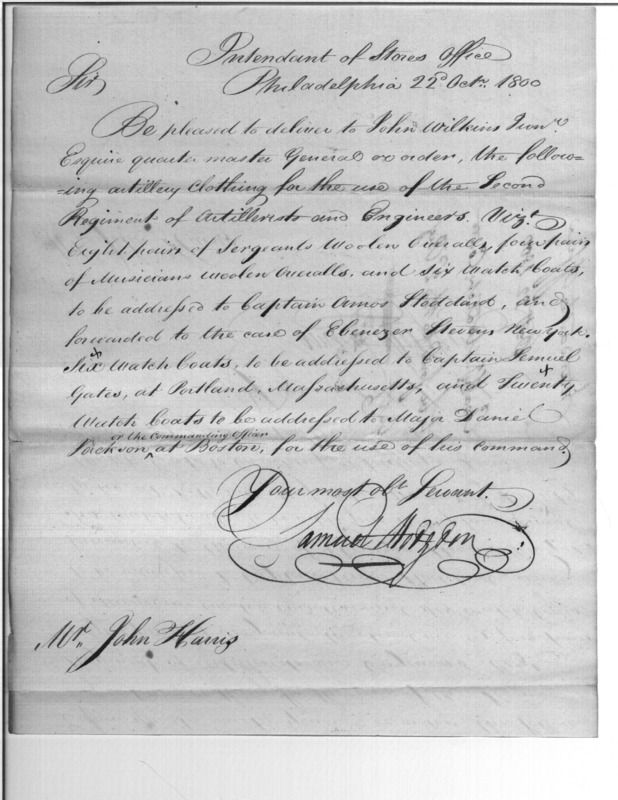 Intendant of Stores Office
Sir, Philadelphia 22d Octr. 1800
Be pleased to deliver to John Wilkins Junr.
Esquire quarter master General or order, the follow=
=ing artillery clothing for the use of the Second
Regiment of Artillerists and Engineers. Vizt.
Eight pairs of Sergeants Woolen Overalls, four pairs
of Musicians Woolen Overalls, and six Watch Coats,
to be addressed to Captain Amos Stoddard, and
forwarded to the care of Ebenezer Stevens New York.
Six Watch Coats, to be addressed to Captain Lemuel
Gates, at Portland, Massachusetts, and Twenty
Watch Coats to be addressed to Major Daniel
or the Commanding Officer
Jackson ^ at Boston, for the use of his command.
Your most obt. Servant.
Samuel Hodgdon
Mr. John Harris